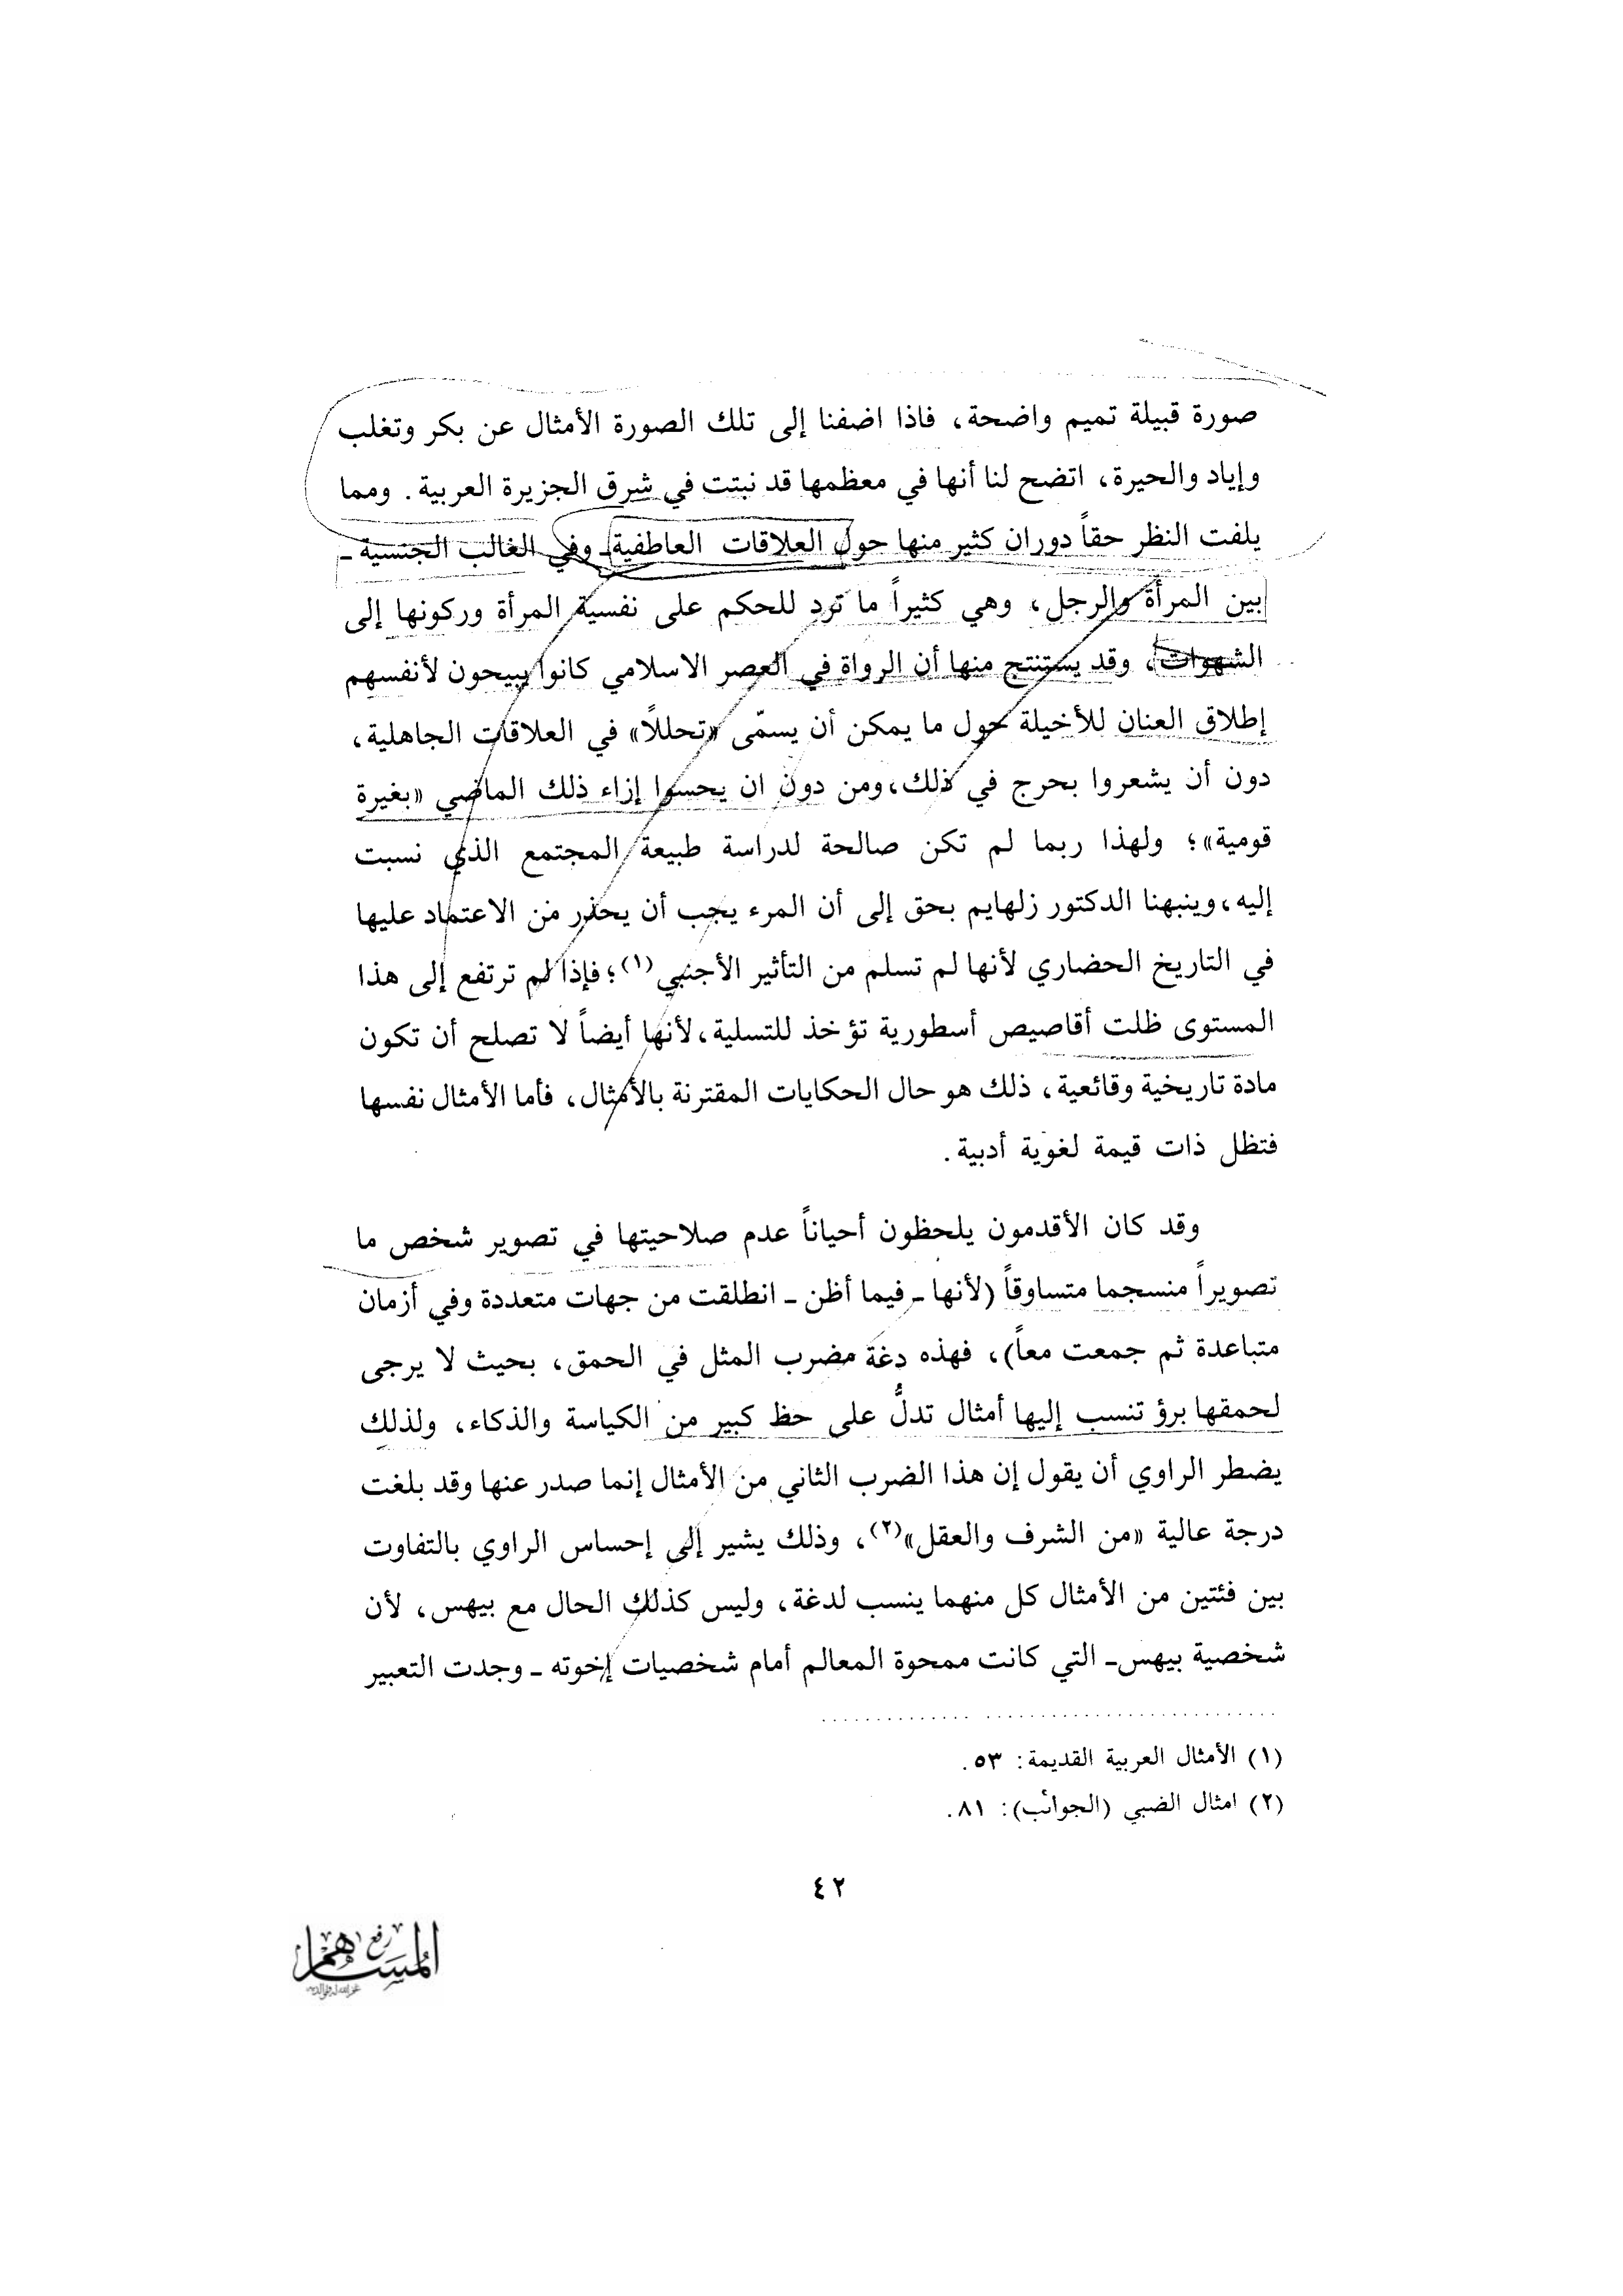 صورة قبيلة تميم واضحة، فاذا اضفنا إلى تلك الصورة الأمثال عن بكر وتغلب
وإياد والحيرة، اتضح لنا أنها في معظمها قد نبتت في شرق الجزيرة العربية. ومما
يلفت النظر حقاً دوران كثير منها حول العلاقات العاطفية ـ وفي الغالب الجنسية ـ
بين المرأة والرجل، وهي كثيراً ما ترد للحكم على نفسية المرأة وركونها إلى
الشهوات، وقد يستنتج منها أن الرواة في العصر الاسلامي كانوا يبيحون لأنفسهم
إطلاق العنان للأخيلة حول ما يمكن أن يسمّى «تحللاً» في العلاقات الجاهلية،
دون أن يشعروا بحرج في ذلك، ومن دون ان يحسوا إزاء ذلك الماضي «بغيرة
قومية»؛ ولهذا ربما لم تكن صالحة لدراسة طبيعة المجتمع الذي نسبت
إليه، وينبهنا الدكتور زلهايم بحق إلى أن المرء يجب أن يحذر من الاعتماد عليها
في التاريخ الحضاري لأنها لم تسلم من التأثير الأجنبي (١)؛ فإذا لم ترتفع إلى هذا
المستوى ظلت أقاصيص أسطورية تؤخذ للتسلية، لأنها أيضاً لا تصلح أن تكون
مادة تاريخية وقائعية، ذلك هو حال الحكايات المقترنة بالأمثال، فأما الأمثال نفسها
فتظل ذات قيمة لغوية أدبية.
وقد كان الأقدمون يلحظون أحياناً عدم صلاحيتها في تصوير شخص ما
تصويراً منسجما متساوقاً (لأنها ـ فيما أظن ـ انطلقت من جهات متعددة وفي أزمان
متباعدة ثم جمعت معاً)، فهذه دغة مضرب المثل في الحمق، بحيث لا يرجى
لحمقها برؤ تنسب إليها أمثال تدلُّ على حظ كبير من الكياسة والذكاء، ولذلك
يضطر الراوي أن يقول إن هذا الضرب الثاني من الأمثال إنما صدر عنها وقد بلغت
درجة عالية «من الشرف والعقل» (٢)، وذلك يشير إلى إحساس الراوي بالتفاوت
بين فئتين من الأمثال كل منهما ينسب لدغة، وليس كذلك الحال مع بيهس، لأن
شخصية بيهس ـ التي كانت ممحوة المعالم أمام شخصيات إخوته ـ وجدت التعبير
(١) الأمثال العربية القديمة: ٥٣.
(٢) امثال الضبي (الجوائب): ٨١.
٤٢